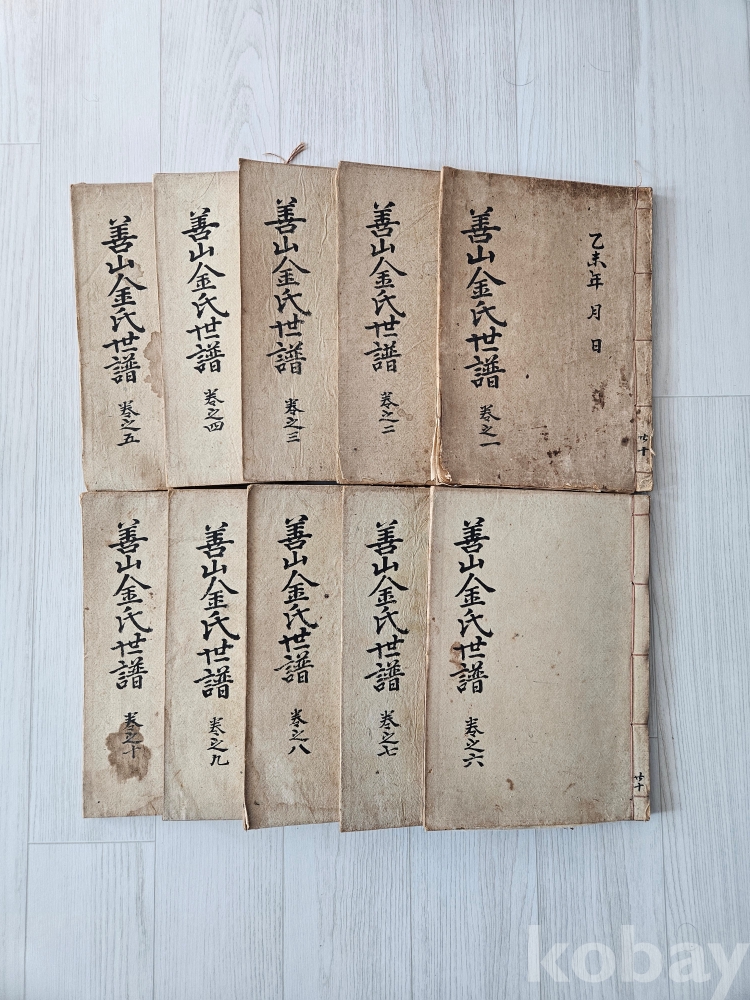 乙未年 月 日
善山金氏世譜 卷之一
共十
善山金氏世譜 卷之二
善山金氏世譜 卷之三
善山金氏世譜 卷之四
善山金氏世譜 卷之五
善山金氏世譜 卷之六
共十
善山金氏世譜 卷之七
善山金氏世譜 卷之八
善山金氏世譜 卷之九
善山金氏世譜 卷之十
kobay